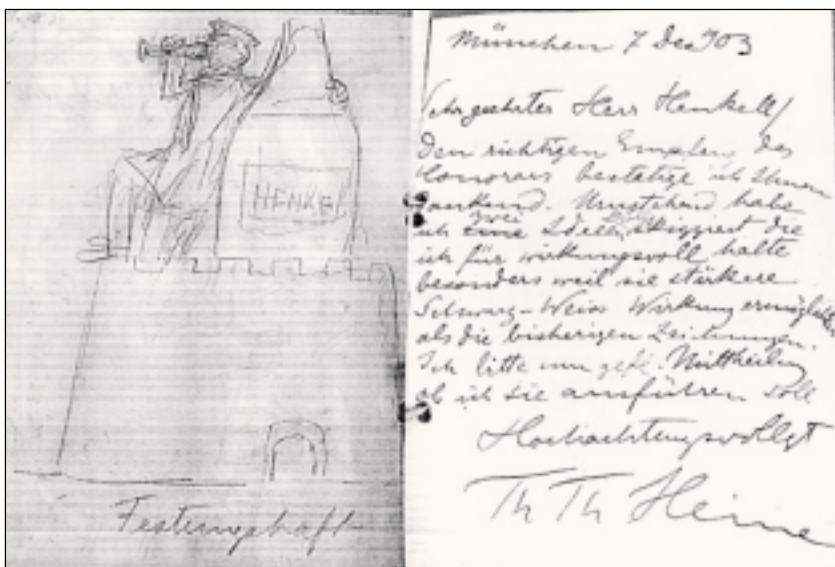 HENKE
Festungshaft
München 7 Dez 903
Sehr geehrter Herr Henkell!
den richtigen Empfang des
Honorars bestätige ich Ihnen
dankend. Umstehend habe
ich zwei skizziert die
ich für wirkungsvoll halte
besonders weil sie stärkere
Schwarz-Weiss Wirkung ermöglichen
als die bisherigen Zeichnungen.
Ich bitte um gefl. Mittheilung
ob ich sie ausführen soll
Hochachtungsvollst
Th Th Heine